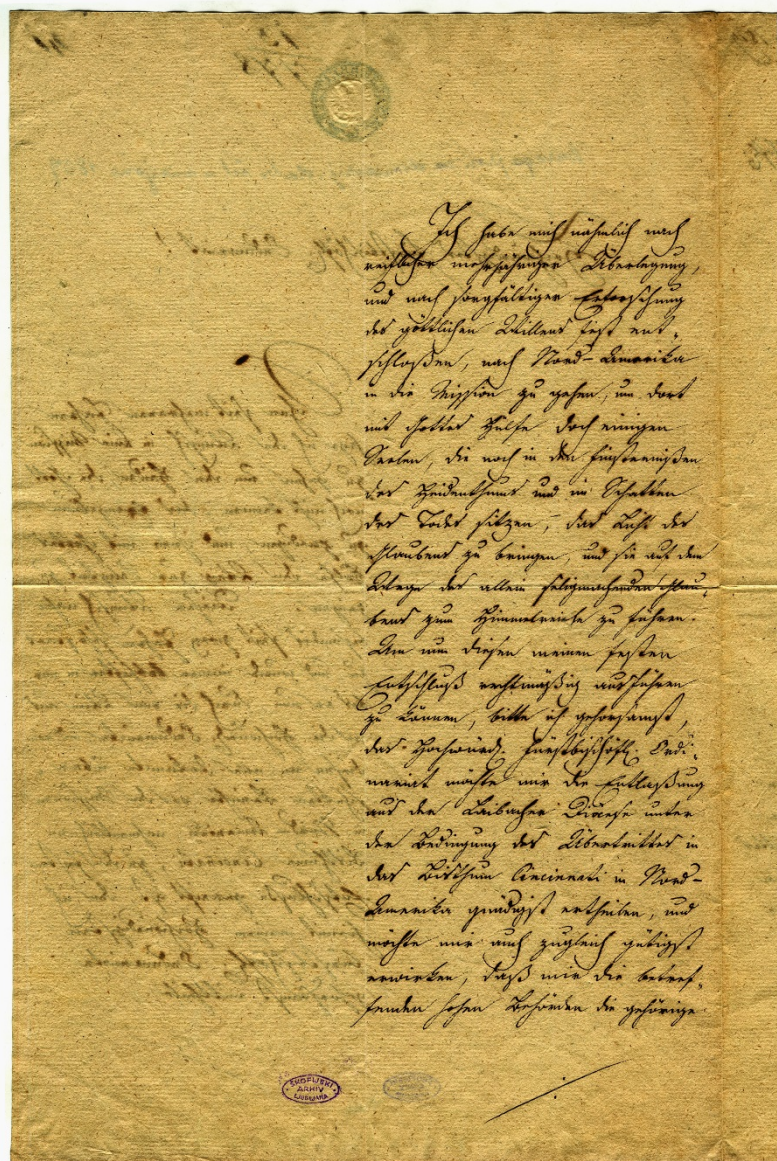 Ich habe mich nähmlich nach
reiflicher mehrjähriger Überlegung,
und nach sorgfältiger Erforschung
des göttlichen Willens fest ent-
schloßen, nach Nord-Amerika
in die Mission zu gehen, um dort
mit Gottes Hülfe doch einigen
Seelen, die noch in den Finsternißen
des Heidenthums und im Schatten
des Todes sitzen, das Licht des
Glaubens zu bringen, und sie auf dem
Wege des allein seligmachenden Glau-
bens zum Himmelreiche zu führen.
Um nun diesen meinen festen
Entschluß rechtmäßig ausführen
zu können, bitte ich gehorsamst,
das Hochwürd. Fürstbischöfl. Ordi-
nariat möchte mir die Entlaßung
aus der Laibacher Diöcese unter
der Bedingung des Übertrittes in
das Bisthum Cincinnati in Nord-
Amerika gnädigst ertheilen, und
möchte mir auch zugleich gütigst
erwirken, daß mir die betref-
fenden hohen Behörden die gehörige
ŠKOFIJSKI
ARHIV
LJUBLJANA